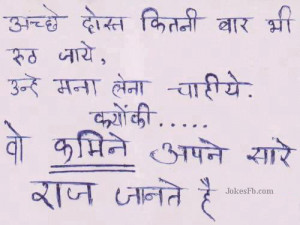 अच्छे दोस्त कितनी बार भी
रुठ जाये,
उन्हे मना लेना चाहीये.
क्योंकी.....
वो कमिने अपने सारे
राज जानते है
JokesFb.com